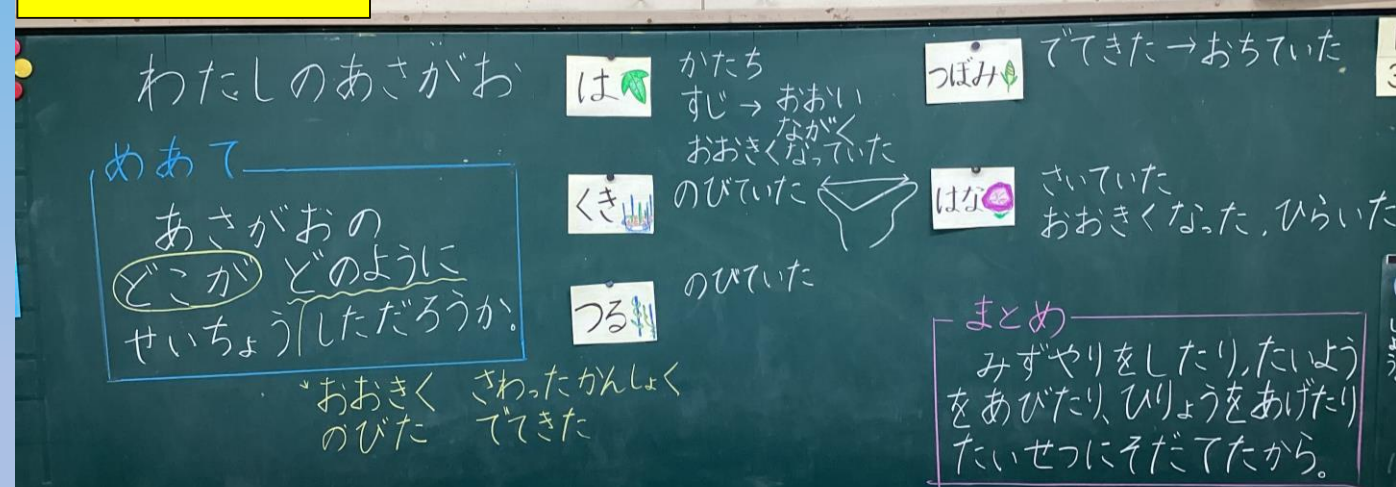 わたしのあさがお
めあて
あさがおの
どこが どのように
せいちょうしただろうか。
*おおきく さわったかんしょく
のびた でてきた
は
かたち
すじ→おおい
ながく
おおきくなっていた
くき
のびていた
つる
のびていた
つぼみ
でてきた→おちていた
はな
さいていた
おおきくなった、ひらいた
まとめ
みずやりをしたり、たいよう
をあびたり、ひりょうをあげたり
たいせつにそだてたから。